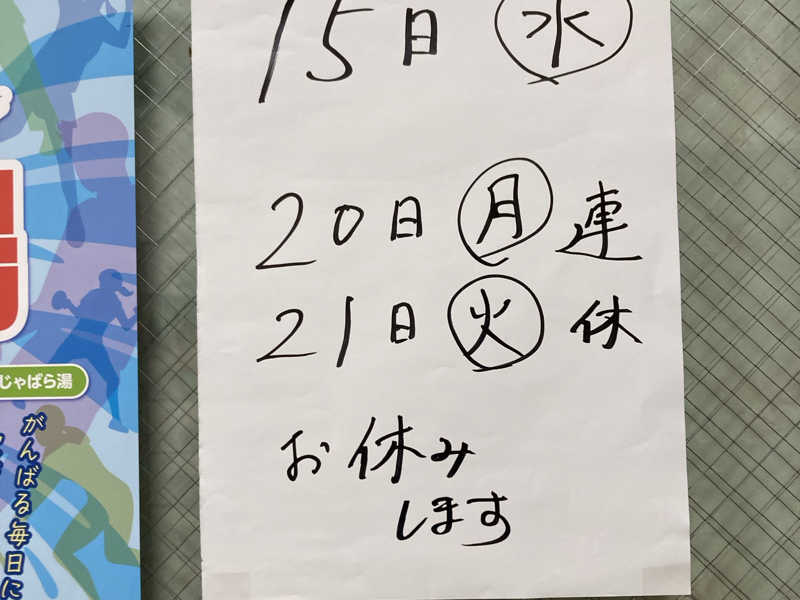 15日㊌
20日㊊連
21日㊋休
お休み
します
じゃばら湯
がんばる毎日に